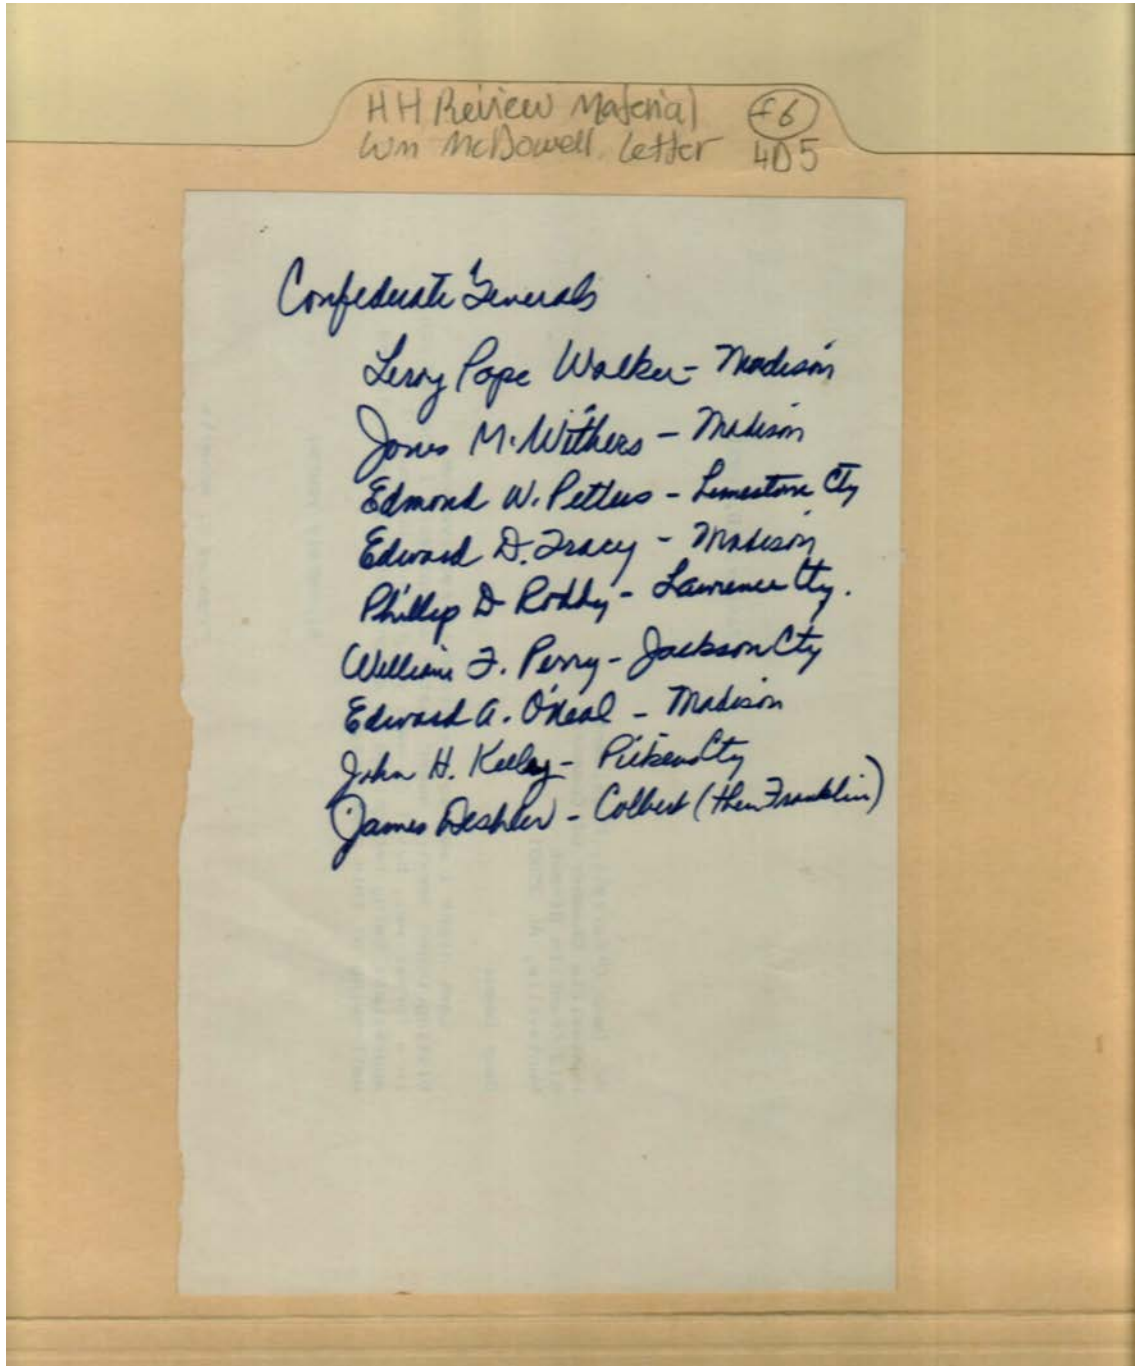 HH Review Material f6
Wm McDowell Letter 4D5
Confederate Generals
Leroy Pope Walker - Madison
Jones M. Withers - Madison
Edmond W. Pettus - Limestone Cty
Edward D. Tracy - Madison
Phillip D Roddy - Lawrence Cty.
William F. Perry - Jackson Cty
Edward A. O'Neal - Madison
John H. Kelley - Pickens Cty
James Deshler - Colbert (then Franklin)